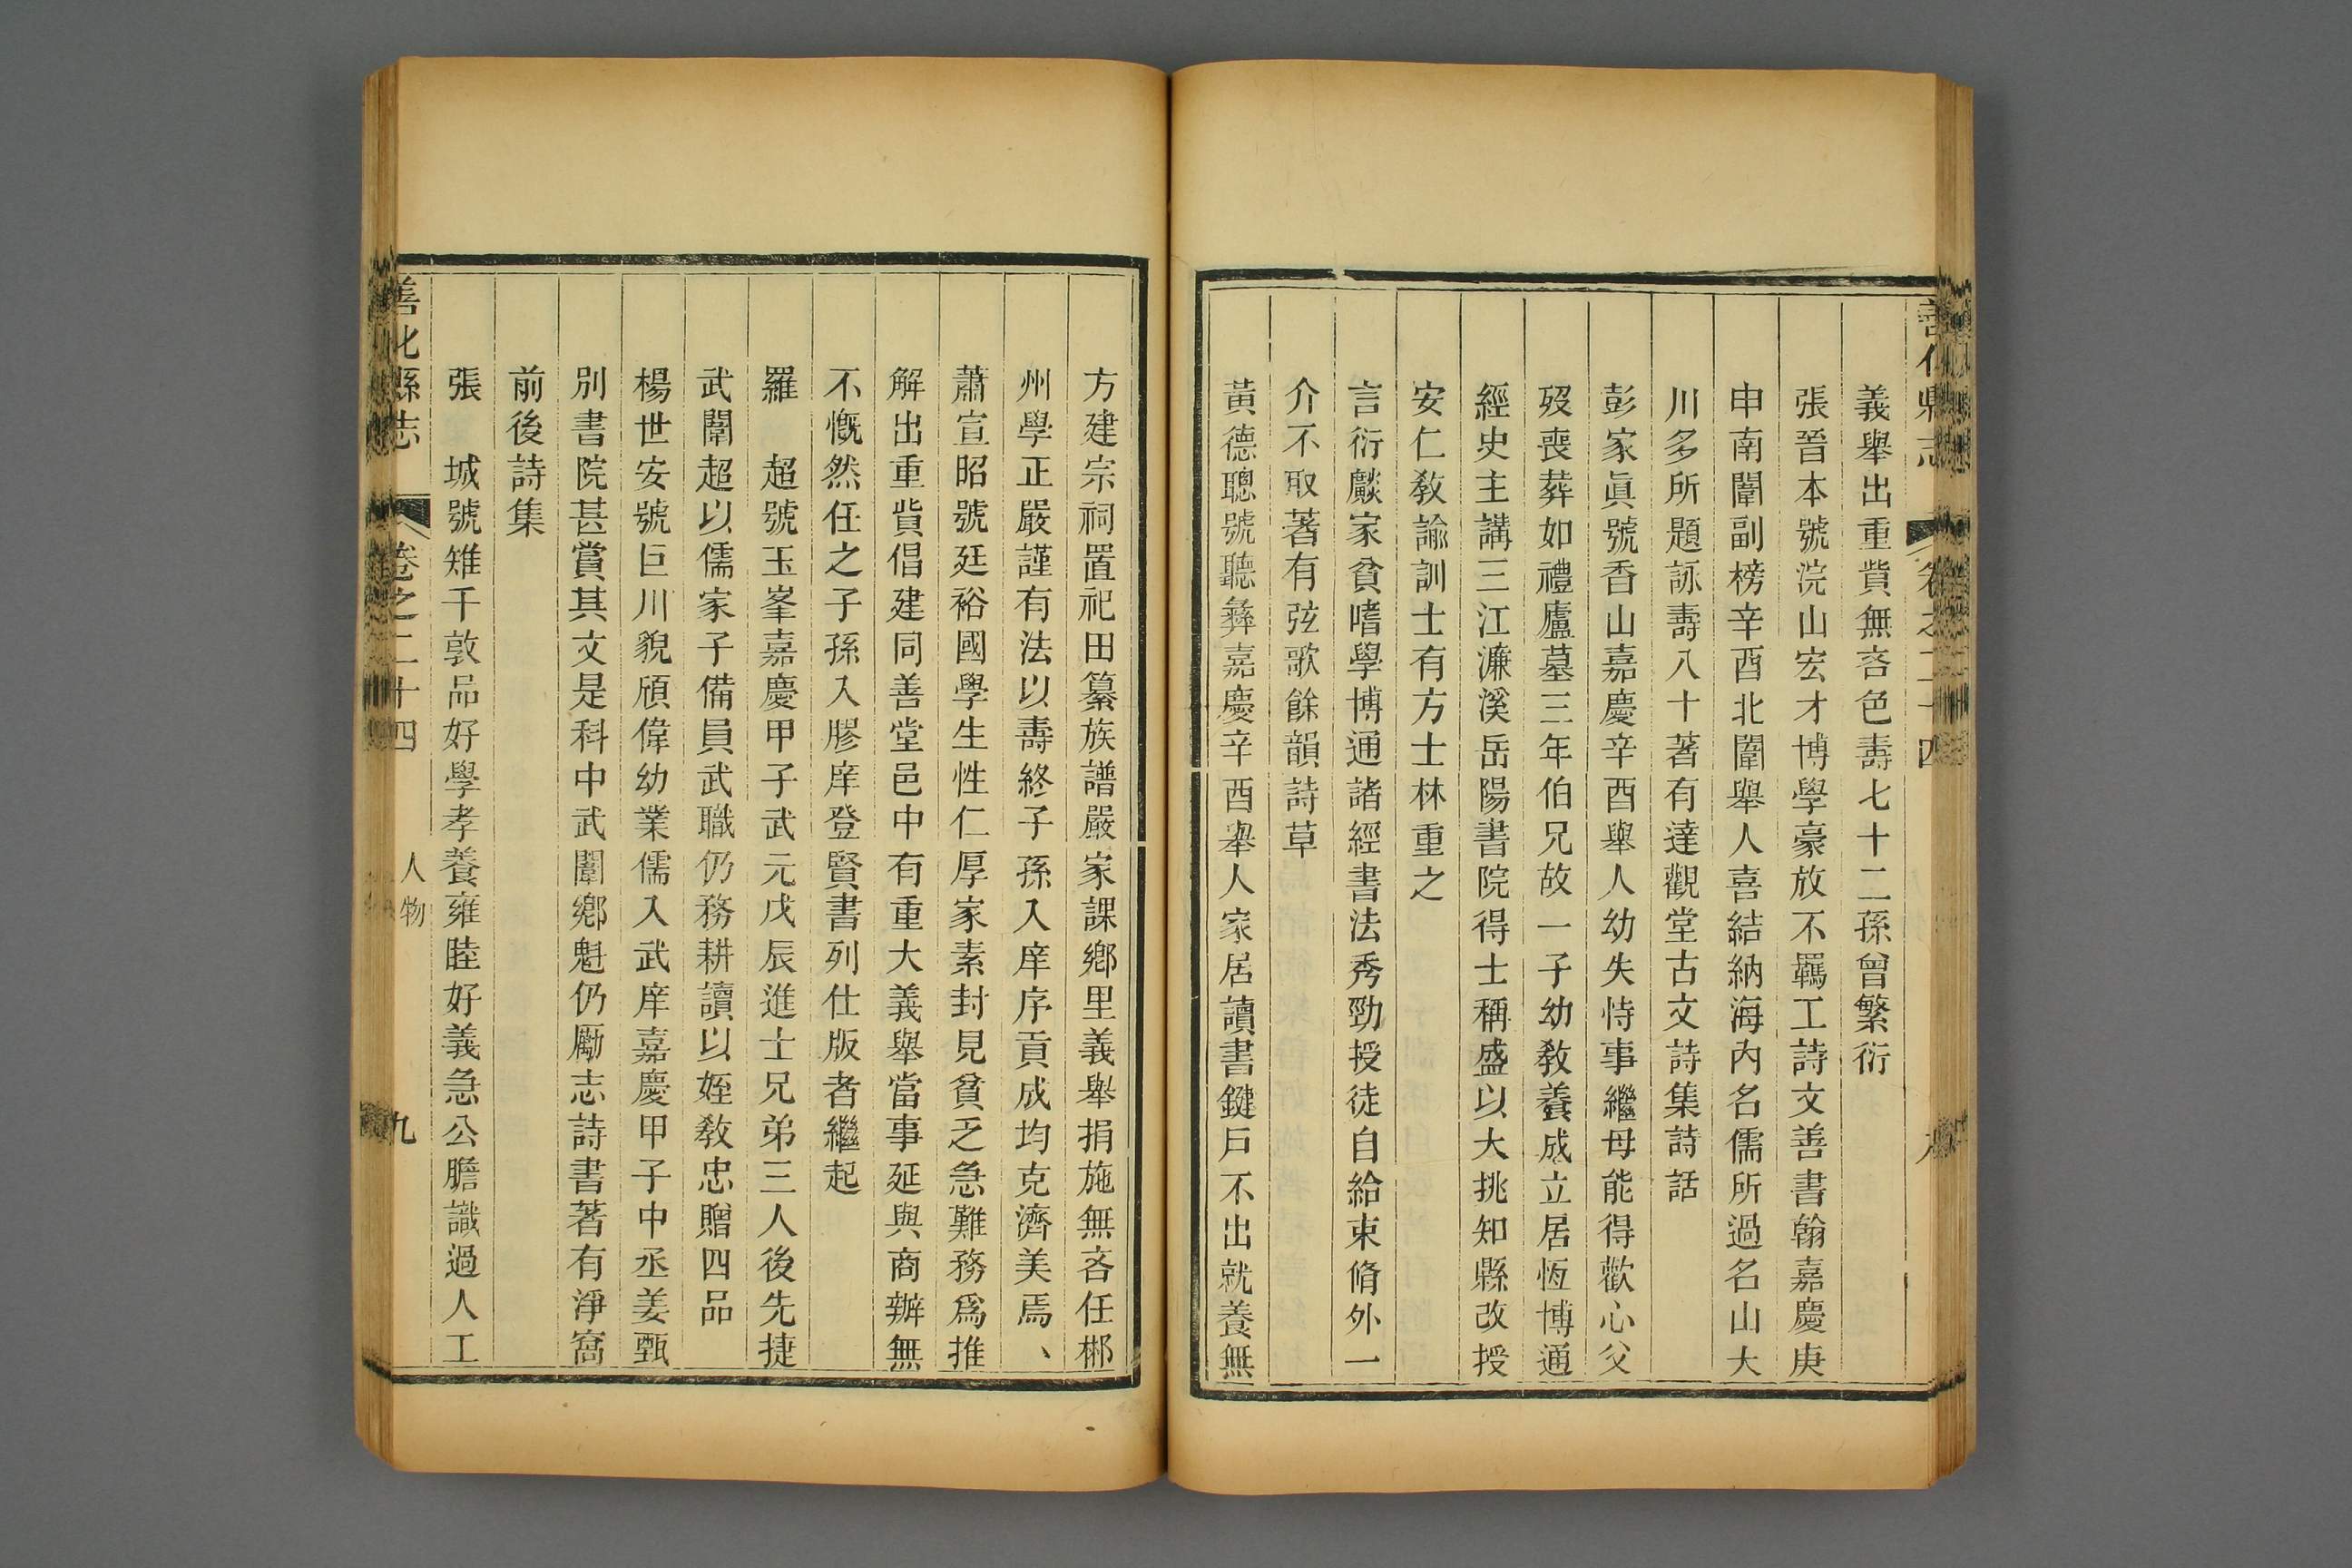 善化縣志 卷之二十四
義舉出重貲無吝色壽七十二孫曾繁衍
張晉本號浣山宏才博學豪放不羈工詩文善書翰嘉慶庚
申南闈副榜辛酉北闈舉人喜結納海內名儒所過名山大
川多所題詠壽八十著有達觀堂古文詩集詩話
彭家眞號香山嘉慶辛酉舉人幼失恃事繼母能得歡心父
歿喪葬如禮廬墓三年伯兄故一子幼敎養成立居恆博通
經史主講三江濂溪岳陽書院得士稱盛以大挑知縣改授
安仁敎諭訓士有方士林重之
言衍歔家貧嗜學博通諸經書法秀勁授徒自給束脩外一
介不取著有弦歌餘韻詩草
黃德聰號聽彝嘉慶辛酉舉人家居讀書鍵戶不出就養無
方建宗祠置祀田纂族譜嚴家課鄉里義舉捐施無吝任郴
州學正嚴謹有法以壽終子孫入庠序貢成均克濟美焉、
蕭宣昭號廷裕國學生性仁厚家素封見貧乏急難務爲推
解出重貲倡建同善堂邑中有重大義舉當事延與商辦無
不慨然任之子孫入膠庠登賢書列仕版者繼起
羅 超號玉峯嘉慶甲子武元戊辰進士兄弟三人後先捷
武闈超以儒家子備員武職仍務耕讀以姪敎忠贈四品
楊世安號巨川貌頎偉幼業儒入武庠嘉慶甲子中丞姜甄
別書院甚賞其文是科中武闈鄉魁仍勵志詩書著有淨窩
前後詩集
張 城號雉千敦品好學孝養雍睦好義急公膽識過人工
善化縣志 卷之二十四 人物 九